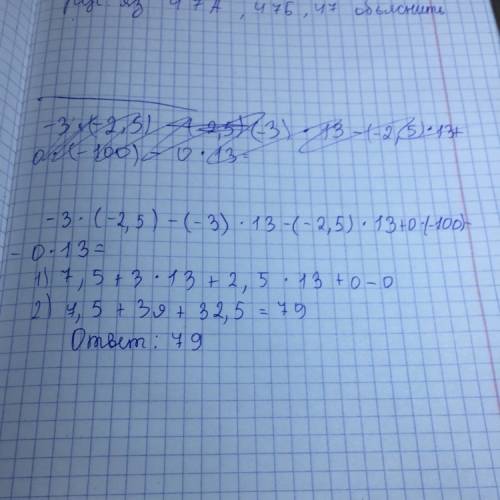 яз 47А, 47Б, 47 объясните
-3·(-2,5) - (-2,5) (-3) · 13 - (-2,5)·13+
0·(-100) - 0·13=
-3·(-2,5)-(-3)·13-(-2,5)·13+0·(-100)-
-0·13=
1) 7,5+3·13+2,5·13+0-0
2) 7,5+39+32,5=79
Ответ: 79